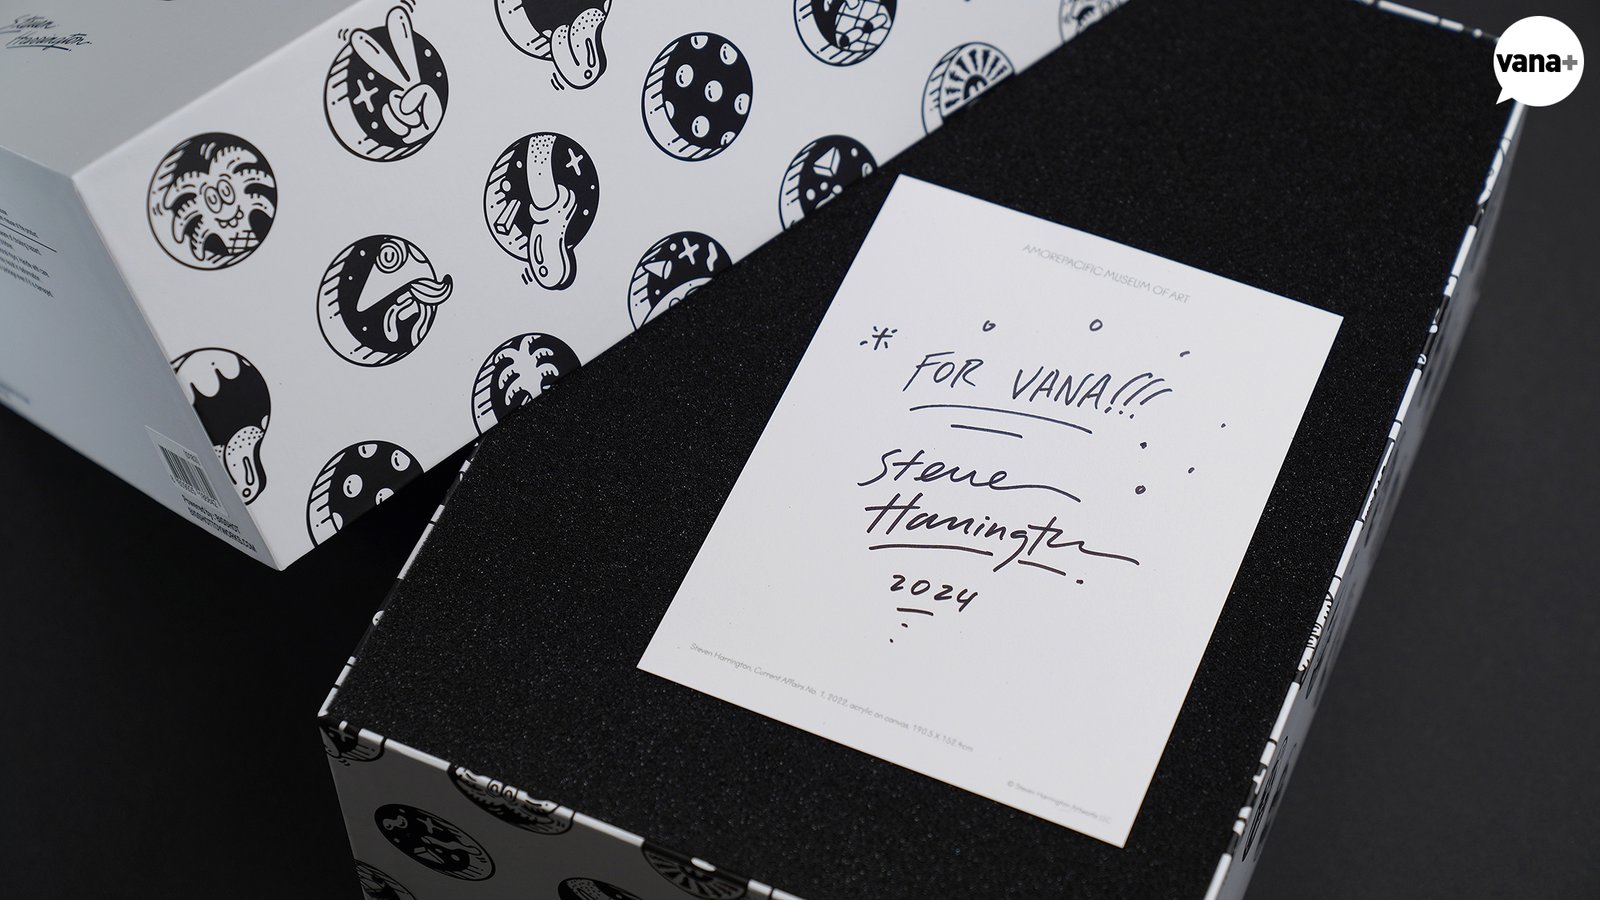 Steven
Harrington
vana+
AMOREPACIFIC MUSEUM OF ART
FOR VANA!!!
Steven
Harrington
2024
Steven Harrington, Current Affairs No. 1, 2022, acrylic on canvas, 190.5 X 152.4cm
© Steven Harrington Artworks LLC
Powered by: BIGSHOT
BIGSHOTTOYWORKS.COM